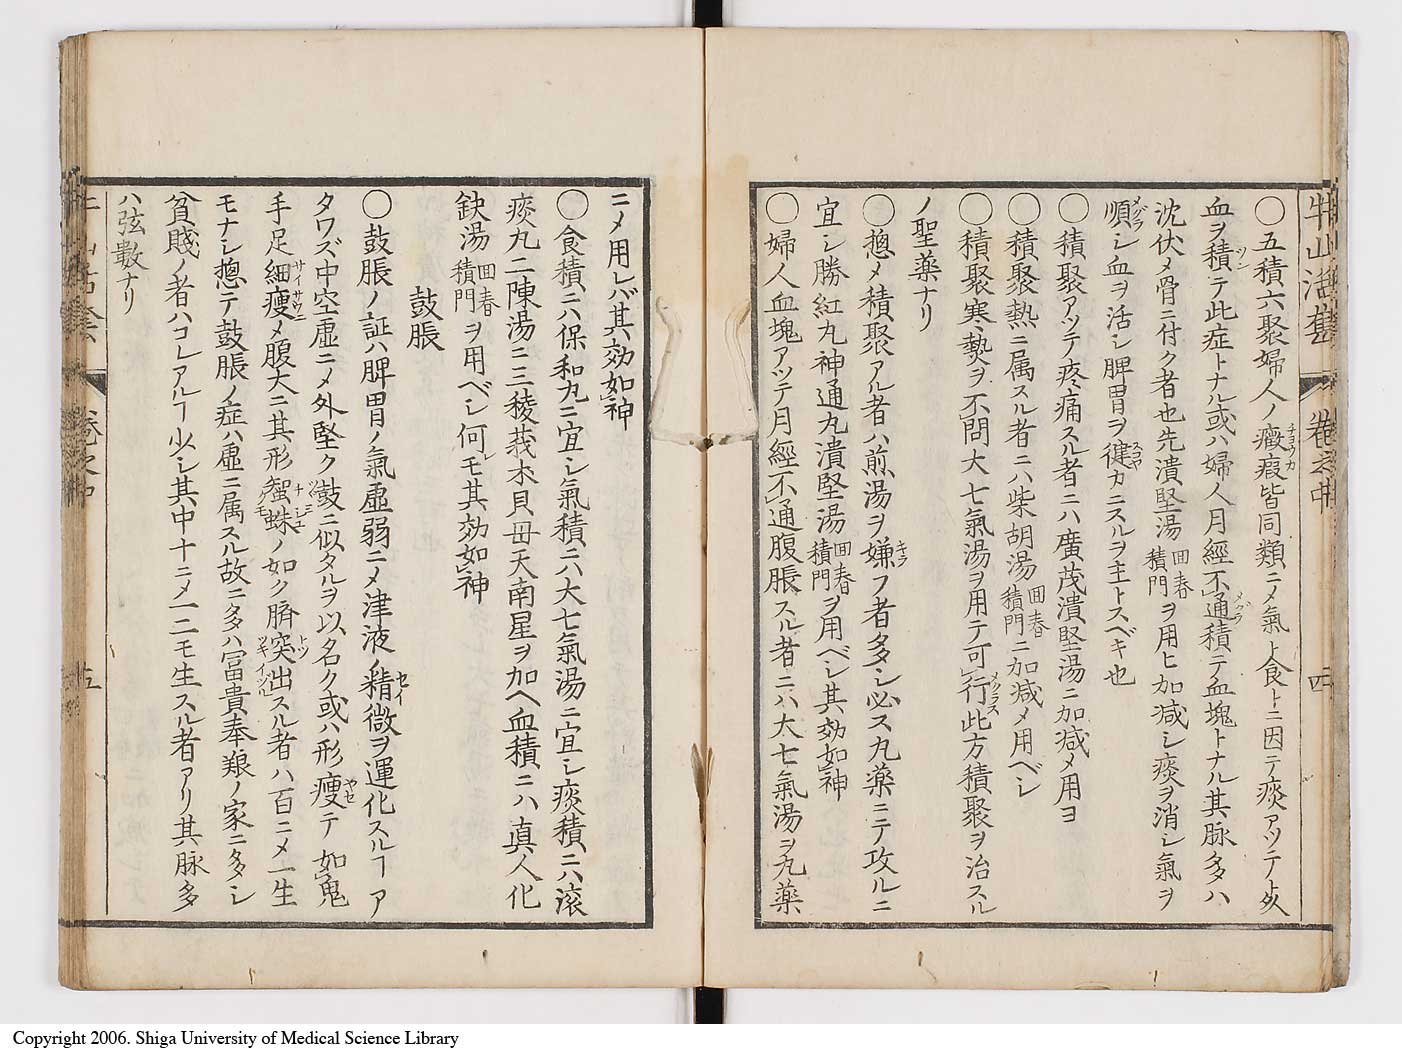 牛山活套 卷之中 四
〇五積六聚婦人ノ癥瘕皆同類ニメ氣ト食トニ因テ痰アツテ死
血ヲ積テ此症トナル或ハ婦人月經不通積テ血塊トナル其脉多ハ
沈伏メ骨ニ付ク者也先潰堅湯回春積門ヲ用ヒ加減シ痰ヲ消シ氣ヲ
順シ血ヲ活シ脾胃ヲ健カニスルヲ主トスベキ也
〇積聚アツテ疼痛スル者ニハ廣茂潰堅湯ニ加减メ用ヨ
〇積聚熱ニ属スル者ニハ柴胡湯回春積門ニ加减メ用ベシ
〇積聚寒熱ヲ不問大七氣湯ヲ用テ可行此方積聚ヲ治スル
ノ聖藥ナリ
〇摠メ積聚アル者ハ煎湯ヲ嫌フ者多シ必ス丸藥ニテ攻ルニ
宜シ勝紅丸神通丸潰堅湯回春積門ヲ用ベシ其効如神
〇婦人血塊アツテ月經不通腹脹スル者ニハ大七氣湯ヲ丸藥
ニメ用レバ其効如神
〇食積ニハ保和丸ニ宜シ氣積ニハ大七氣湯ニ宜シ痰積ニハ滚
痰丸二陳湯ニ三稜莪朮貝母天南星ヲ加ヘ血積ニハ真人化
鉄湯回春積門ヲ用ベシ何レモ其効如神
鼓脹
〇鼓脹ノ証ハ脾胃ノ氣虚弱ニメ津液ノ精微ヲ運化スルヿア
タワズ中空虚ニメ外堅ク鼓ニ似タルヲ以名ク或ハ形瘦テ如鬼
手足細瘦メ腹大ニ其形蜘蛛ノ如ク臍突出スル者ハ百ニメ一生
モナシ摠テ鼓脹ノ症ハ虚ニ属スル故ニ多ハ冨貴奉艱ノ家ニ多シ
貧賤ノ者ハコレアルヿ少シ其中十ニメ一二モ生スル者アリ其脉多
ハ弦數ナリ
卷之中 五
Copyright 2006. Shiga University of Medical Science Library